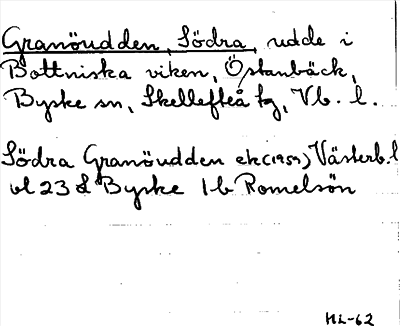 Granöudden, Södra, udde i
Bottniska viken, Östanbäck,
Byske sn, Skellefteå tg, Vb. l.
Södra Granöudden ek(1959) Västerb. l
bl 23 d Byske 1b Romelsön
HL-62